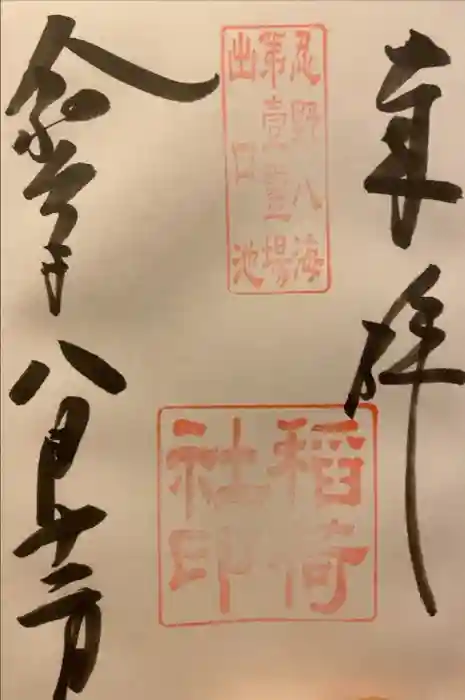 奉拝
忍野八海
第壹霊場
出口池
稲荷
社印
八月十二日